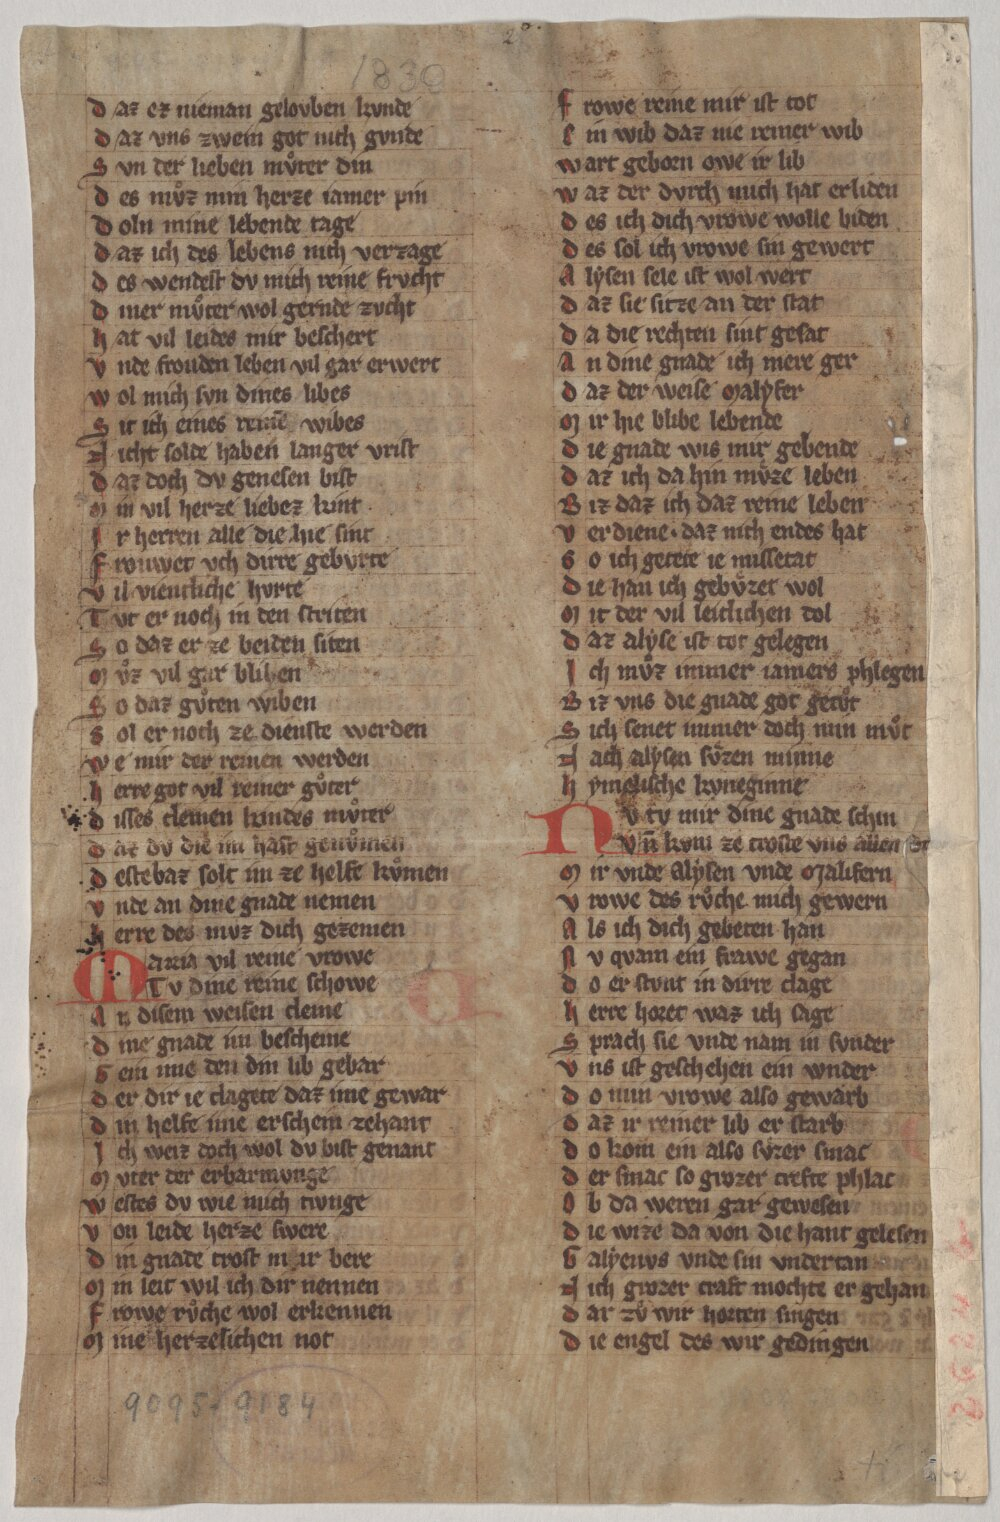 1830
D az ez nieman gelovben kvnde
D az vns zwein got nich gvnde
S vn der lieben mvͦter din
D es mvͦz min herze iamer pin
D oln mine lebende tage
D az ich des lebens nich verzage
D es wendest dv mich reine frvcht
D iner mvͦter wol gernde zvcht
H at vil leides mir beschert
V nde frouden leben vil gar erwert
W ol mich svn dines libes
S it ich eines reine wibes
N icht solde haben langer vrist
D az doch dv genesen bist
M in vil herze liebez kint
I r herren alle die hie sint
F rouwet vch dirre gebvrte
V il vientliche hvrte
T vt er noch in den striten
S o daz er ze beiden siten
M vͦz vil gar bliben
S o daz gvͦten wiben
S ol er noch ze dienste werden
W e mir der reinen werden
H erre got vil reiner gvͦter
D isses cleinen kindes mvͦter
D az dv die im hast genvͦmen
D estebaz solt im ze helfe kvͦmen
V nde an dine gnade nemen
H erre des mvz dich gezemen
M aria vil reine vrowe
T v dine reine schowe
A n disem weisen cleine
D ine gnade im bescheine
S ein mie den din lib gebar
D er dir ie clagete daz ime gewar
D in helfe ime erschein zehant
I ch weiz doch wol dv bist genant
M vter der erbarmvnge
W estes dv wie mich twnge
V on leide herze swere
D in gnade trost mir bere
M in leit wil ich dir nennen
F rowe rvͦche wol erkennen
M ine herzelichen not
9095-9184
F rowe reine mir ist tot
E in wib daz nie reiner wib
W art geborn owe ir lib
W az der dvrch mich hat erliden
D es ich dich vrowe wolle biden
D es sol ich vrowe sin gewert
A lysen sele ist wol wert
D az sie sitze an der stat
D a die rechten sint gesat
A n dine gnade ich mere ger
D az der weise Malyfer
M ir hie blibe lebende
D ie gnade wis mir gebende
D az ich da hin mvͦze leben
B iz daz ich daz reine leben
V erdiene daz nich endes hat
S o ich getete ie missetat
D ie han ich gebvͦzet wol
M it der vil leitlichen dol
D az alyse ist tot gelegen
I ch mvͦz immer iamers phlegen
B iz vns die gnade got getvͦt
S ich senet immer doch min mvͦt
N ach alysen svͦzen minne
H ymelische kvneginne
N v tv mir dine gnade schin
V n̄ kvm ze troste vns allen
M ir vnde Alysen vnde Malifern
V rowe des rvͦche mich gewern
A ls ich dich gebeten han
N v qvam ein frawe gegan
D o er stvnt in dirre clage
H erre horet waz ich sage
S prach sie vnde nam in svnder
V ns ist geschehen ein wnder
D o min vrowe also gewarb
D az ir reiner lib er starb
D o kom ein also svzer smac
D er smac so grozer crefte phlac
O b da weren gar gewesen
D ie wize da von die hant gelesen
G alyenvs vnde sin vndertan
N ich grozer craft mochte er gehan
D ar zvͦ wir horten singen
D ie engel des wir gedingen